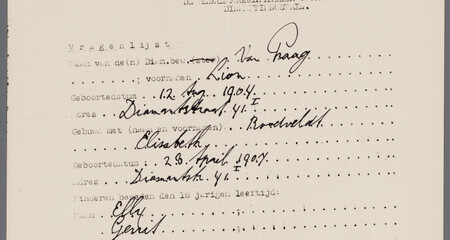 DIAMANTINDUSTRIE.
Vragenlijst
Naam van de(n) Diam.bew. (ster) Van Praag
; voornamen Lion
Geboortedatum 12 Aug. 1904.
Adres Diamantstraat 41 I
Gehuwd met (naam en voornamen) Roodveldt
Elisabeth
Geboortedatum 28 April 1907
Adres Diamantstr. 41 I
Kinderen beneden den 16 jarigen leeftijd:
Naam Elly ;
Gerrit ;